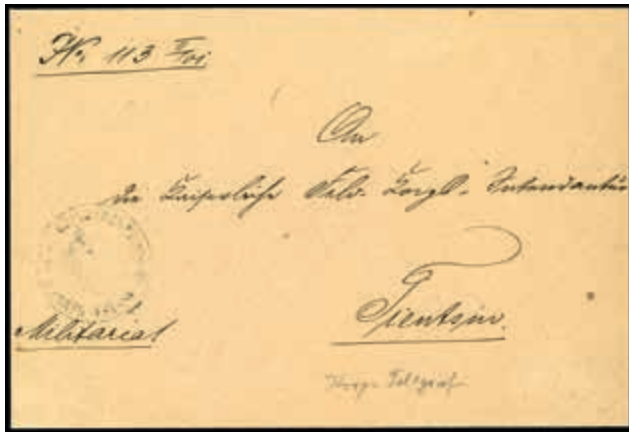 No 113 II/01.
An
die Kaiserliche Feld-Korps-Intendantur
Tientsin.
Militaria!
Korps Telegraf